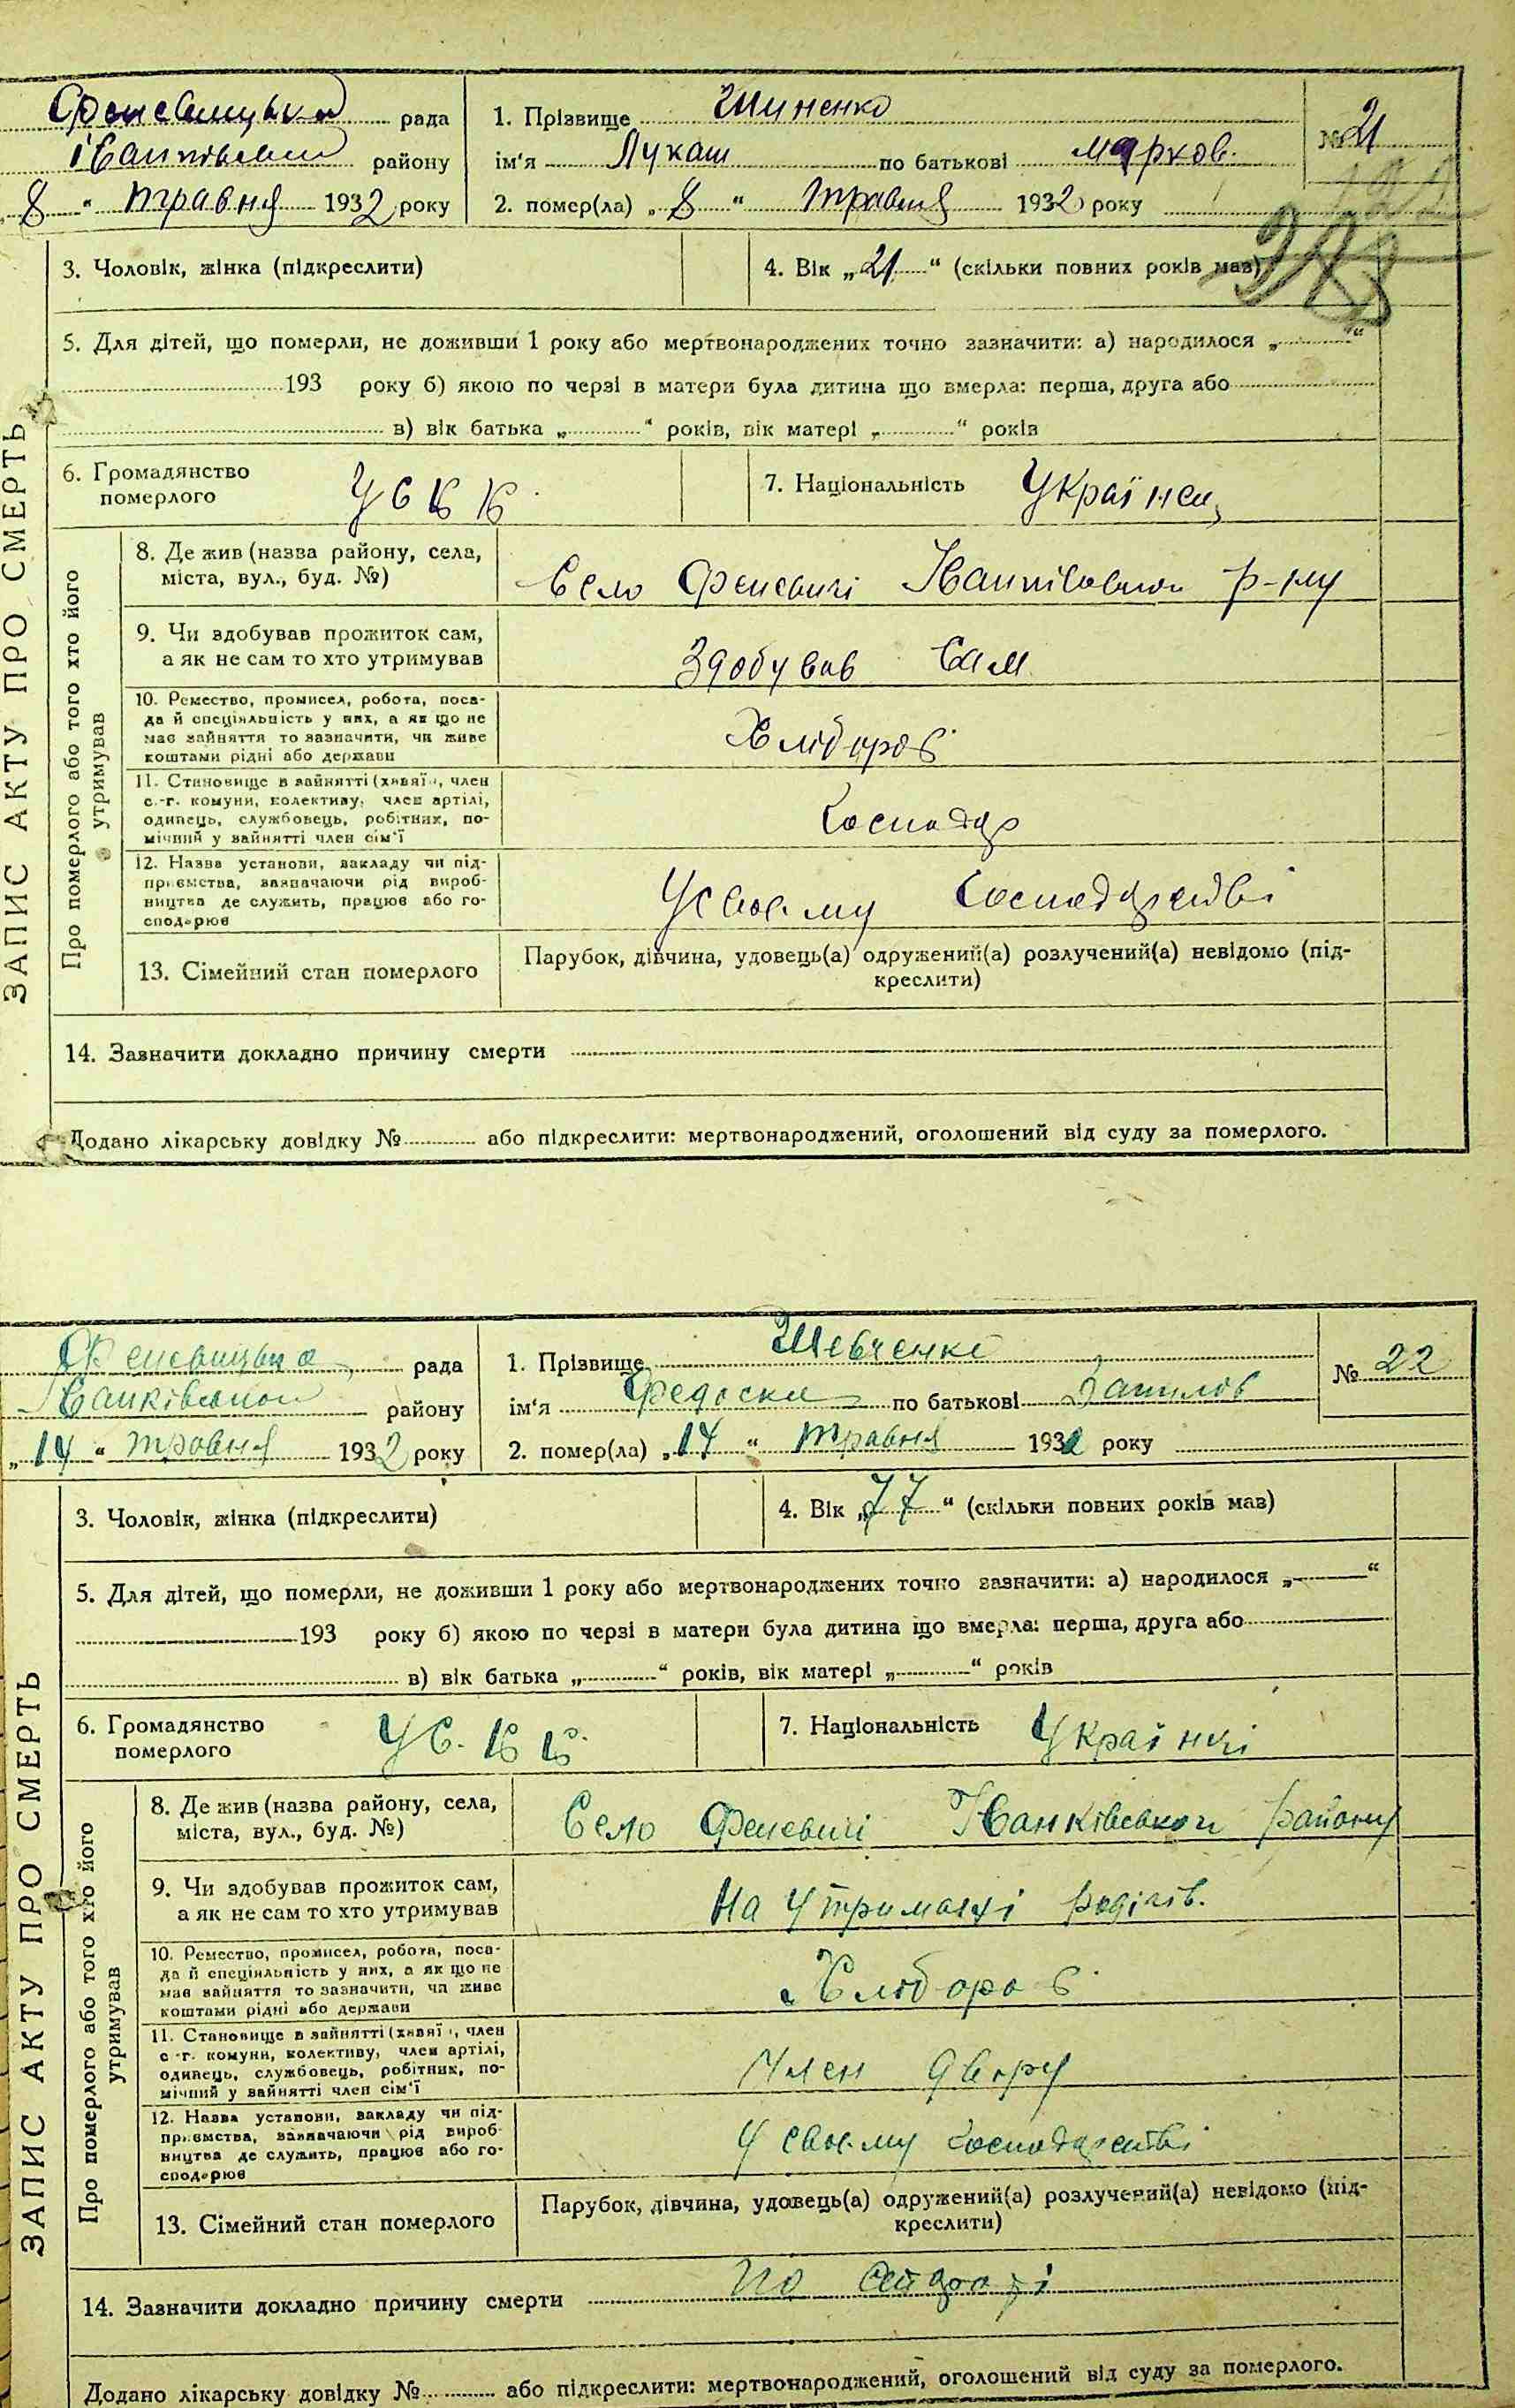 Феневицька рада
Іванківський району
„8“ травня 1932 року
1. Прізвище Шиненко
ім'я Лукаш по батькові Марков.
2. помер(ла) „8“ травня 1932 року
№ 21
3. Чоловік, жінка (підкреслити)
4. Вік „21“ (скільки повних років мав)
5. Для дітей, що померли, не доживши 1 року або мертвонароджених точно зазначити: а) народилося „ “
193 року б) якою по черзі в матери була дитина що вмерла: перша, друга або
в) вік батька „ “ років, вік матері „ “ років
6. Громадянство
померлого
УСРР.
7. Національність Українец
ЗАПИС АКТУ ПРО СМЕРТЬ
Про померлого або того хто його
утримував
8. Де жив (назва району, села,
міста, вул., буд. №)
Село Феневичі Іванківської р-ну
9. Чи здобував прожиток сам,
а як не сам то хто утримував
Здобував Сам
10. Ремество, промисел, робота, поса-
да й спеціяльність у них, а як що не
має зайняття то зазначити, чи живе
коштами рідні або держави
Хлібороб
11. Становище в зайнятті (хазяїн, член
с.-г. комуни, колективу, член артілі,
одинець, службовець, робітник, по-
мічний у зайнятті член сім'ї
Господар
12. Назва установи, закладу чи під-
приємства, зазначаючи рід вироб-
ництва де служить, працює або го-
сподарює
У своєму Господарстві
13. Сімейний стан померлого
Парубок, дівчина, удовець(а) одружений(а) розлучений(а) невідомо (під-
креслити)
14. Зазначити докладно причину смерти
Додано лікарську довідку № або підкреслити: мертвонароджений, оголошений від суду за померлого.
Феневицька рада
Іванківської району
„14“ травня 1932 року
1. Прізвище Шевченко
ім'я Федоска по батькові Данилов
2. помер(ла) „14“ травня 1932 року
№ 22
3. Чоловік, жінка (підкреслити)
4. Вік „77“ (скільки повних років мав)
5. Для дітей, що померли, не доживши 1 року або мертвонароджених точно зазначити: а) народилося „ “
193 року б) якою по черзі в матери була дитина що вмерла: перша, друга або
в) вік батька „ “ років, вік матері „ “ років
6. Громадянство
померлого
УС.РР.
7. Національність Українкі
ЗАПИС АКТУ ПРО СМЕРТЬ
Про померлого або того хто його
утримував
8. Де жив (назва району, села,
міста, вул., буд. №)
Село Феневичі Іванківської району
9. Чи здобував прожиток сам,
а як не сам то хто утримував
На утриманні родичів.
10. Ремество, промисел, робота, поса-
да й спеціяльність у них, а як що не
має зайняття то зазначити, чи живе
коштами рідні або держави
Хлібороб
11. Становище в зайнятті (хазяїн, член
с.-г. комуни, колективу, член артілі,
одинець, службовець, робітник, по-
мічний у зайнятті член сім'ї
Член двору
12. Назва установи, закладу чи під-
приємства, зазначаючи рід вироб-
ництва де служить, працює або го-
сподарює
У своєму господарстві
13. Сімейний стан померлого
Парубок, дівчина, удовець(а) одружений(а) розлучений(а) невідомо (під-
креслити)
14. Зазначити докладно причину смерти По старості
Додано лікарську довідку № або підкреслити: мертвонароджений, оголошений від суду за померлого.